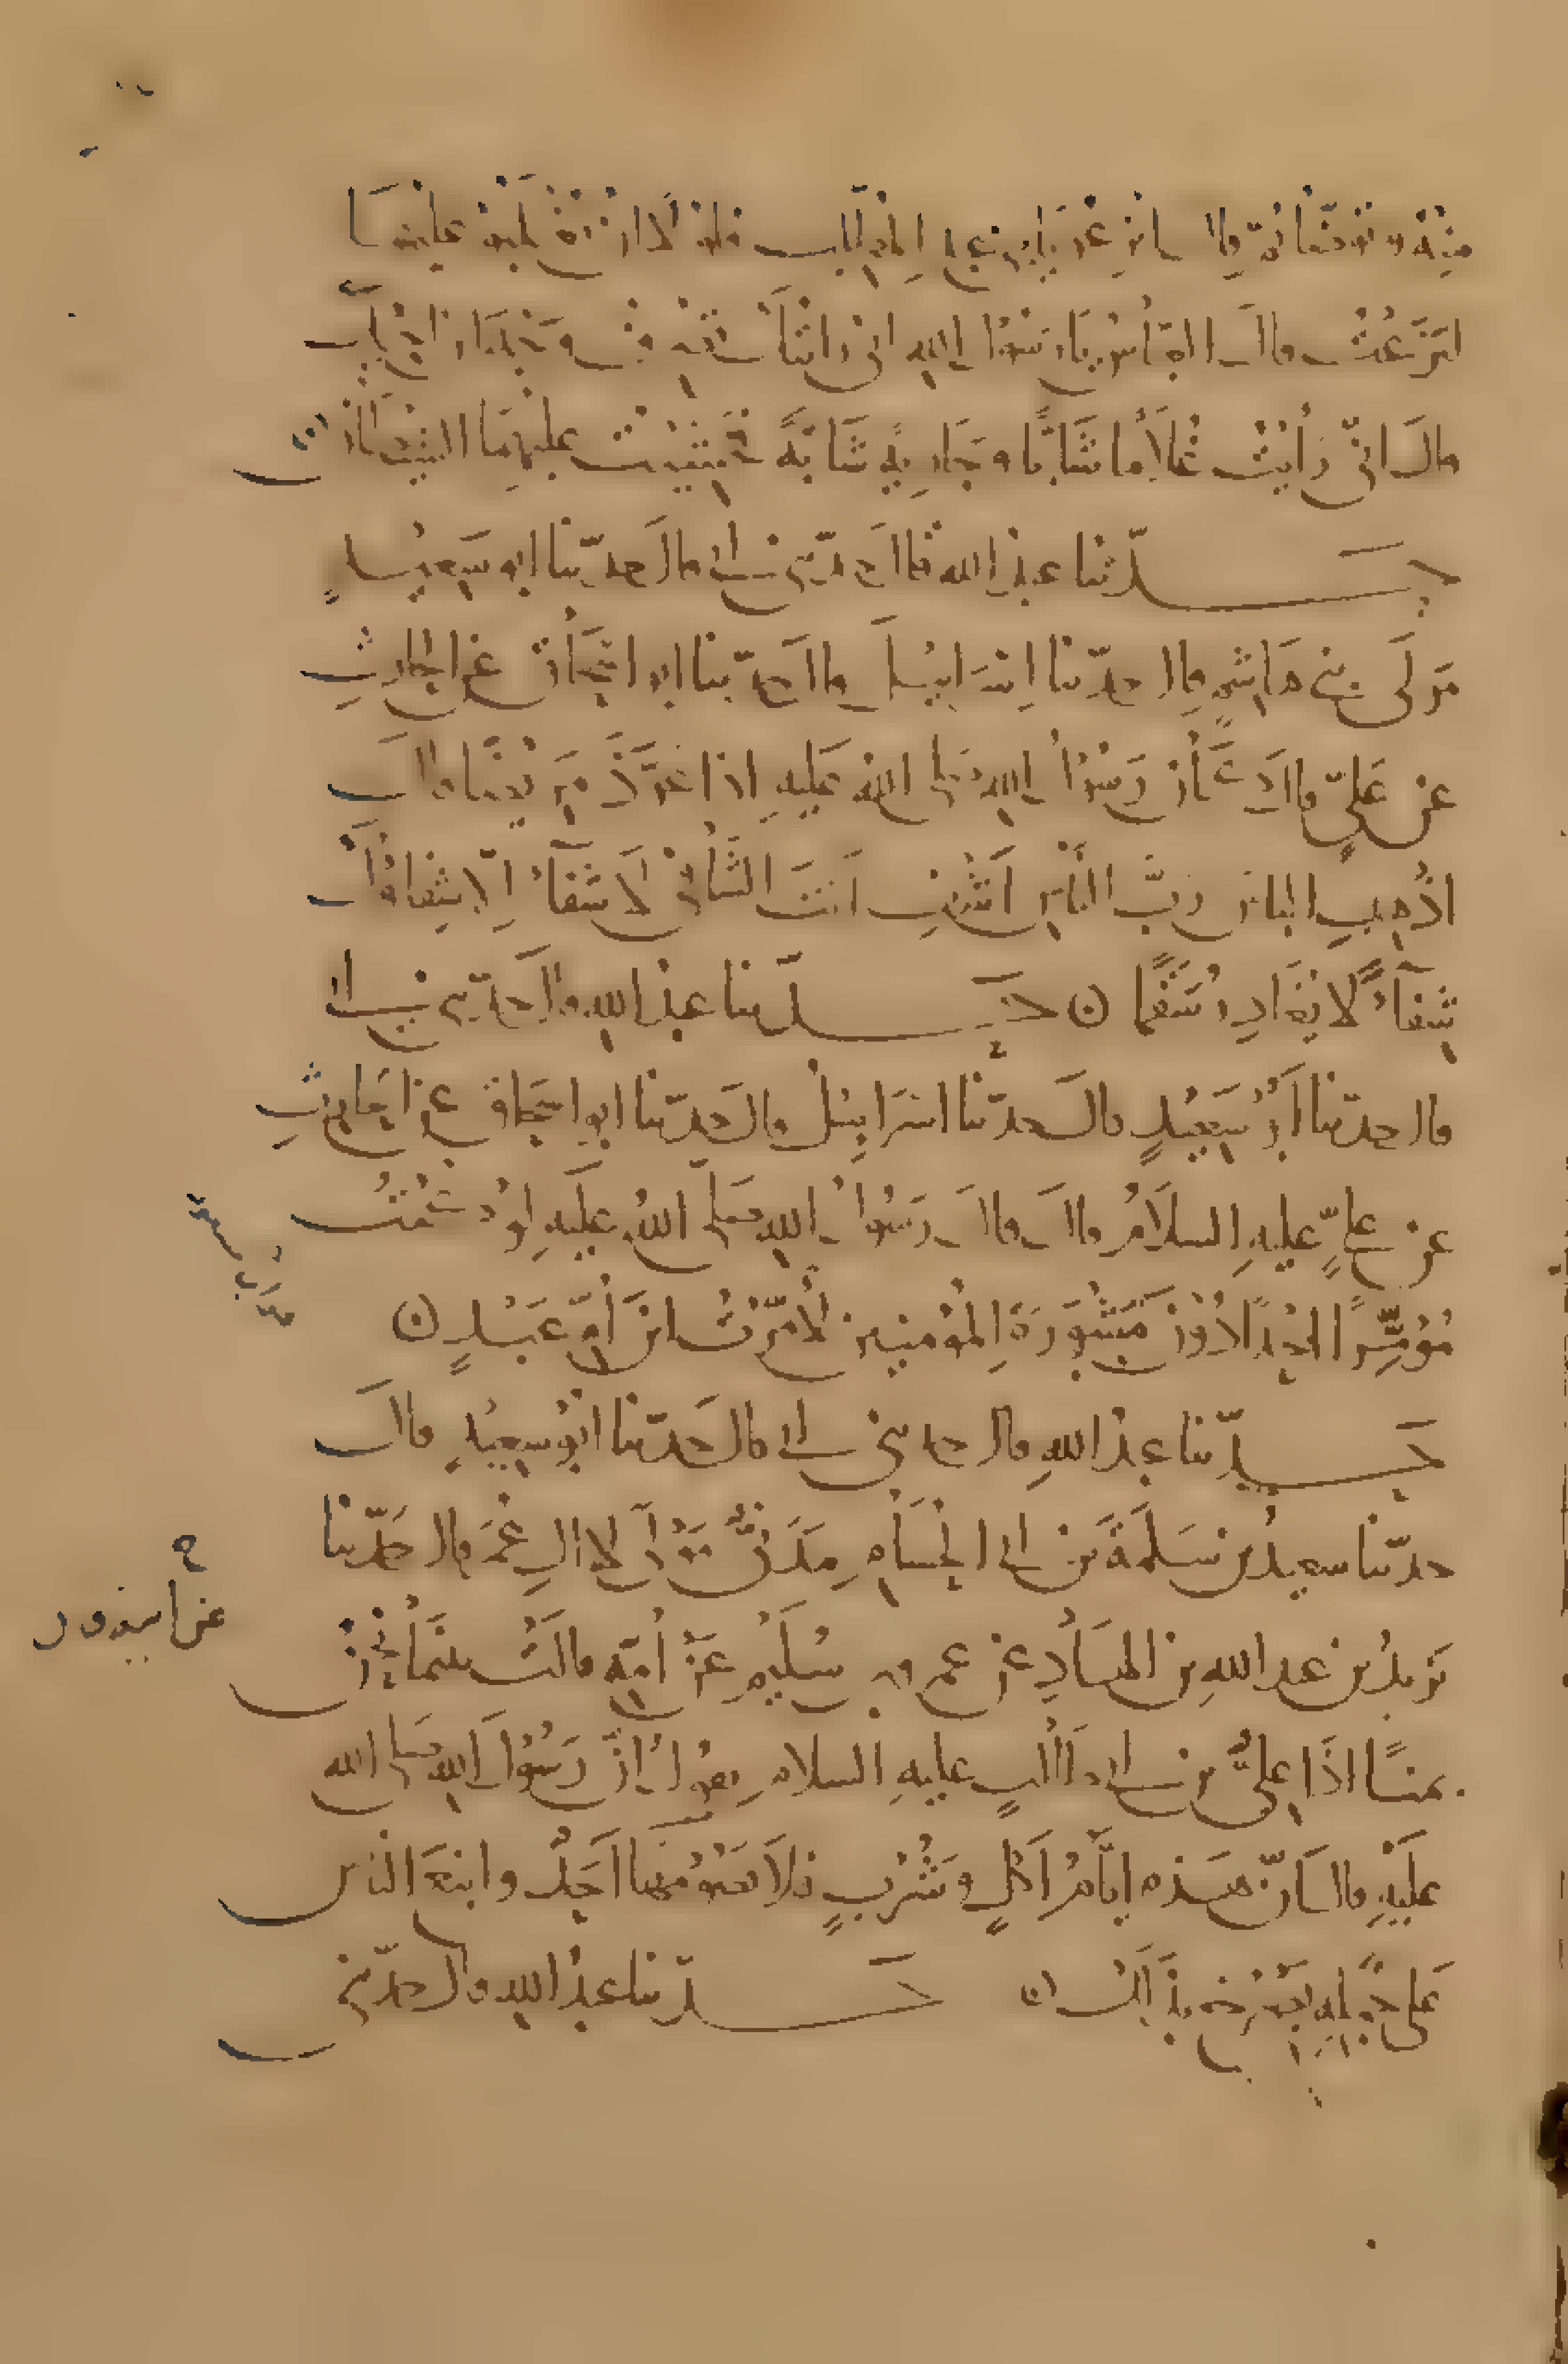 منه وتوضأ ثم قال انزعوا يا بني عبد المطلب فلولا ان تغلبوا عليها
لنزعت قال العباس يا رسول الله اني رايتك تصرف وجه ابن اخيك
قال اني رأيت غلاما شابا وجارية شابة فخشيت عليهما الشيطان
حدثنا عبد الله قال حدثني ابي قال حدثنا ابو سعيد
مولى بني هاشم قال حدثنا اسرائيل قال حدثنا ابو اسحاق عن الحارث
عن علي قال كان رسول الله صلى الله عليه اذا عوذ مريضا قال
اذهب الباس رب الناس اشف انت الشافي لا شفاء الا شفاؤك
شفاء لا يغادر سقما حدثنا عبد الله قال حدثني ابي
قال حدثنا أبو سعيد قال حدثنا اسرائيل قال حدثنا ابو اسحاق عن الحارث
عن علي عليه السلام قال قال رسول الله صلى الله عليه لو كنت
مؤمرا احدا دون مشورة المؤمنين لأمرت ابن أم عبد
حدثنا عبد الله قال حدثني ابي قال حدثنا ابو سعيد قال
حدثنا سعيد بن سلمة بن ابي الحسام مدني مولى لال عمر قال حدثنا
يزيد بن عبد الله بن الهاد عن عمرو بن سليم عن أمه قالت بينما نحن
بمنا اذا علي بن ابي طالب عليه السلام يقول ان رسول الله صلى الله
عليه قال ان هذه ايام اكل وشرب فلا يصومها احد واتبع الناس
على جمله يصرخ بذلك حدثنا عبد الله قال حدثني